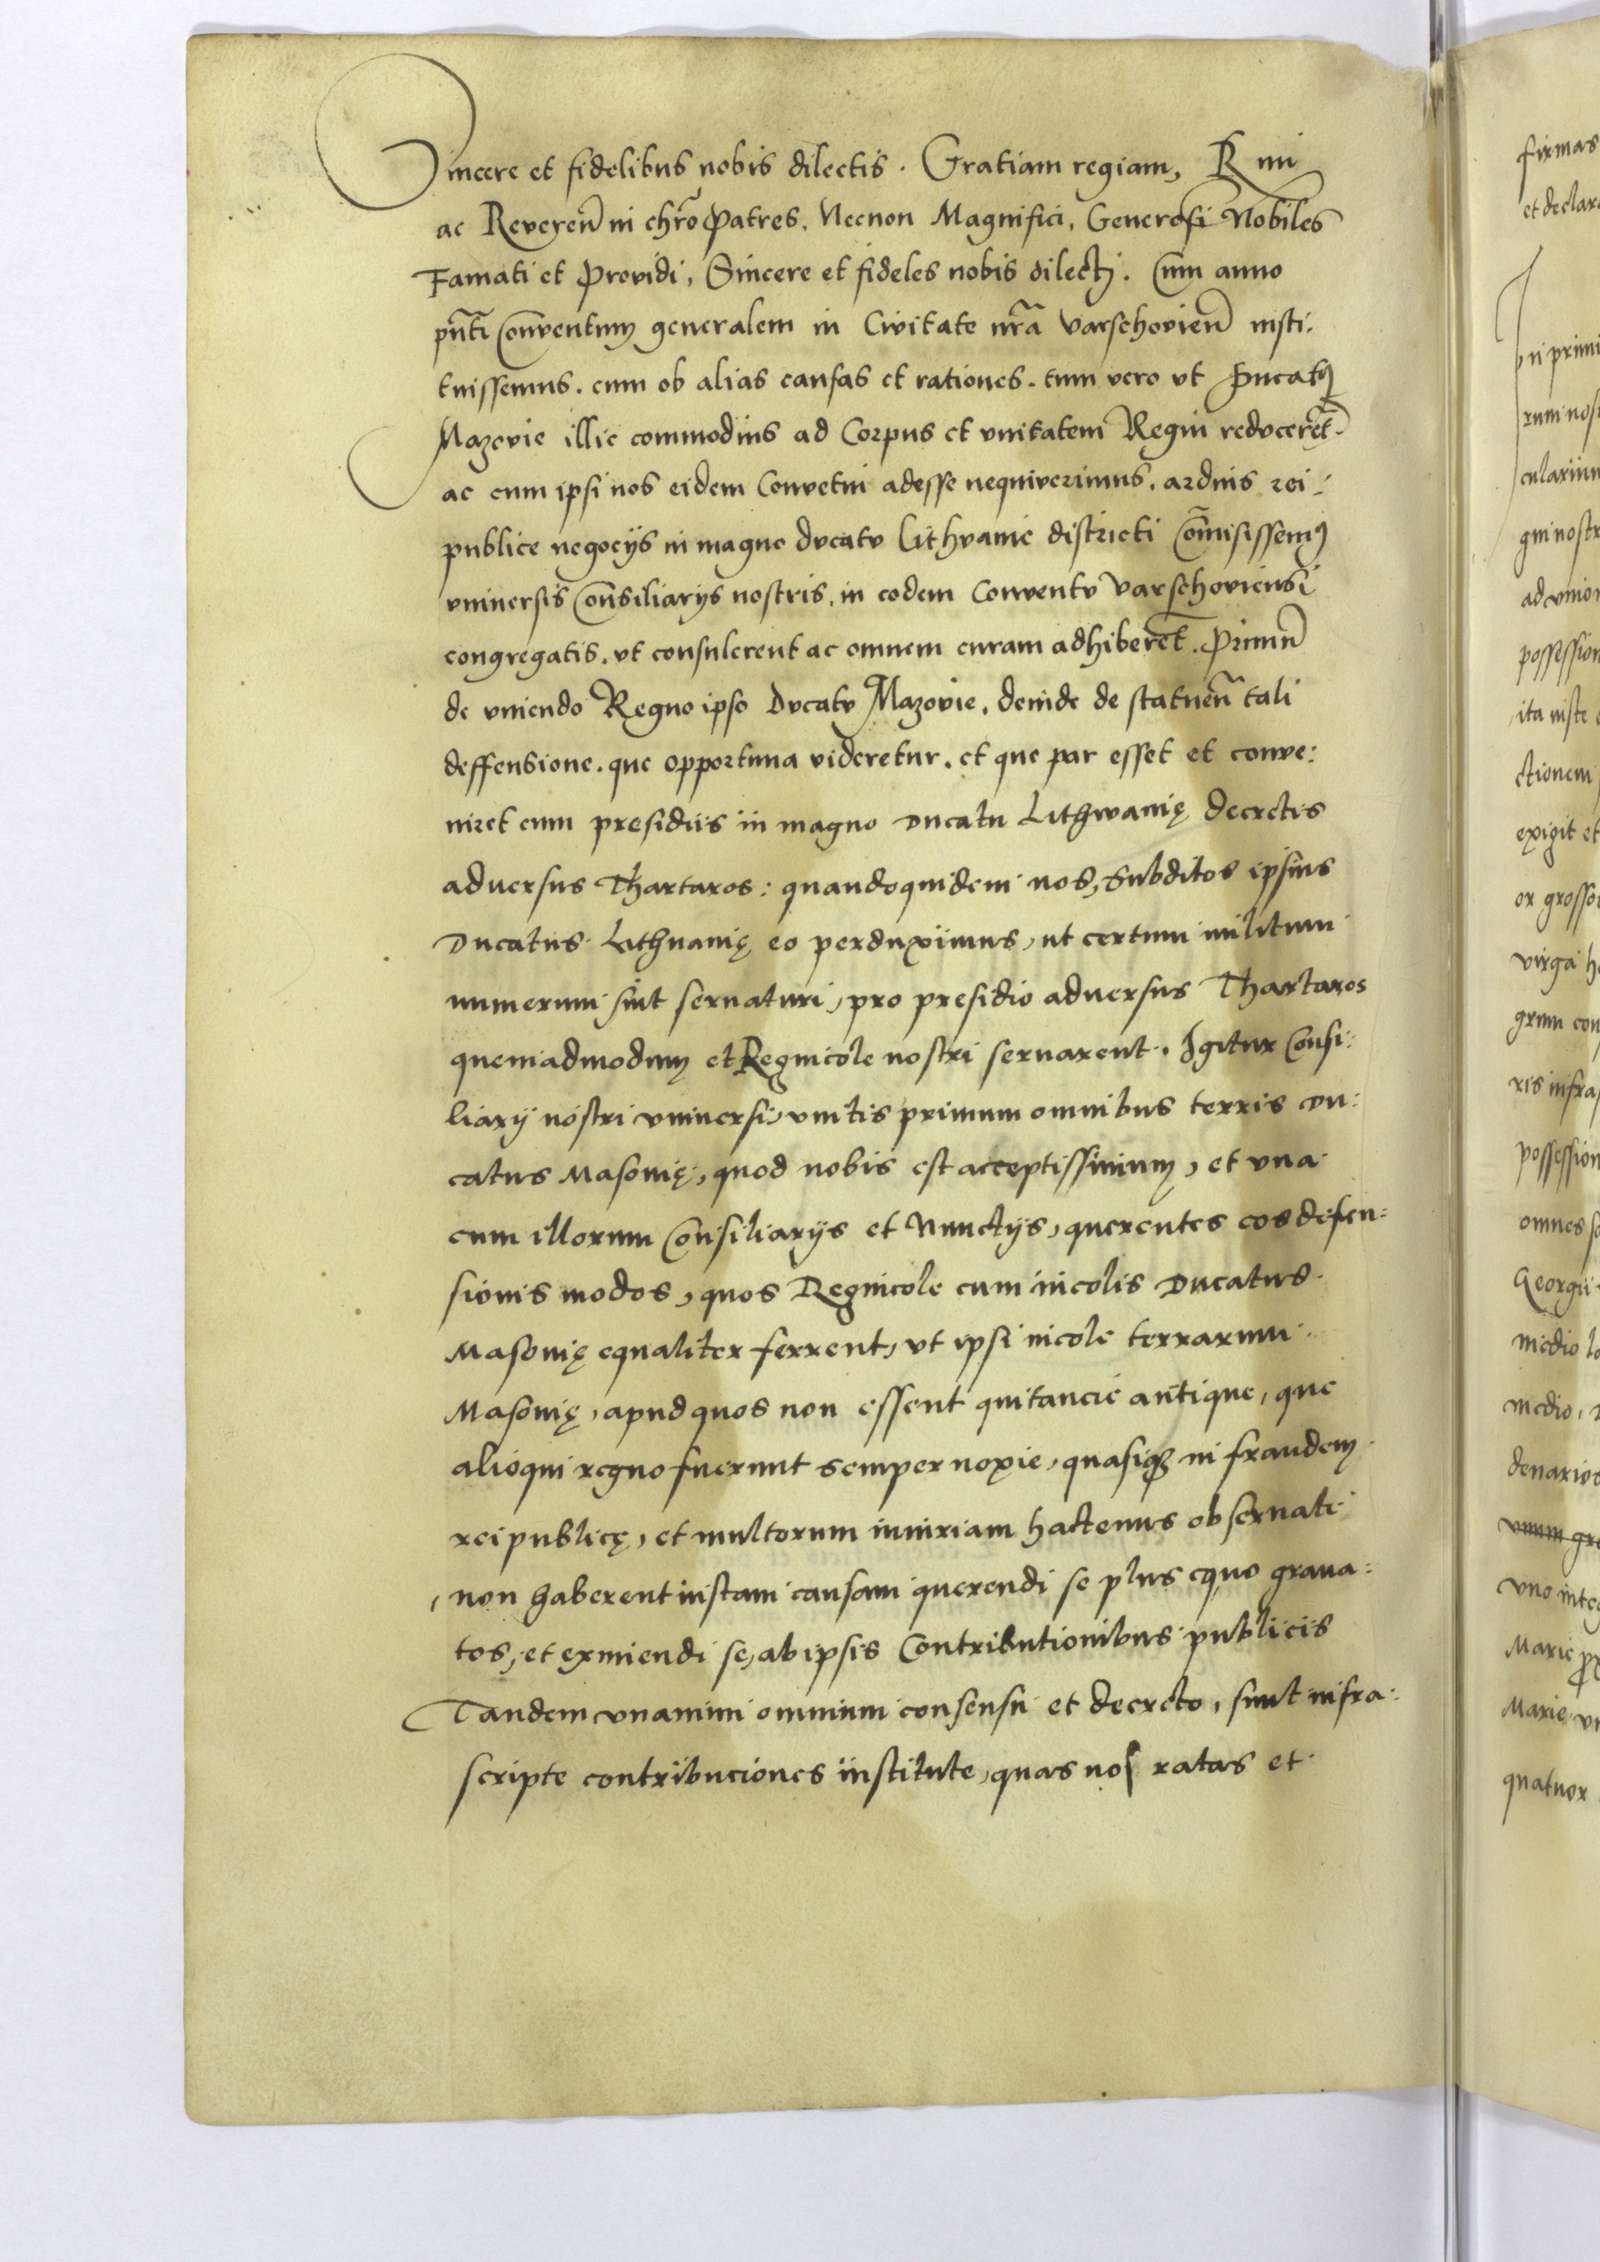 Sincere et fidelibus nobis dilectis. Gratiam regiam, Rmi
ac Reveren̄ in chr̃o Patres, Necnon Magnifici, Generosi Nobiles
Famati et Providi, Sincere et fideles nobis dilecti. Cum anno
pn̄ti Conventum generalem in Civitate nr̃a Varschovien̄ insti:
tuissemus. cum ob alias causas et rationes. tum vero vt Ducatꝰ
Mazovie illic commodius ad Corpus et vnitatem Regni reducerēt.
ac cum ipsi nos eidem Convetui adesse nequiverimus. arduis rei:
publice negocijs in magno ducatu Lithvanie districti Com̄isissemꝰ
vniuersis Cōnsiliarijs nostris. in eodem Conventu Varschoviensi
congregatis. vt consulerent ac omnem curam adhiberēt. Primū
de vniendo Regno ipso Ducatu Mazovie. deinde de statuen̄ tali
deffensione. que opportuna videretur. et que par esset et conve:
niret cum presidiis in magno Ducatu Lithwanię decretis
aduersus Thartaros: quandoquidem nos, Subditos ipsius
Ducatus Lithuanię eo perduximus, ut certum militum
numerum sint seruaturi, pro presidio aduersus Thartaros
quemadmodum et Regnicole nostri seruarent. Igitur Consi:
liarij nostri vniuersi, vnitis primum omnibus terris Du:
catus Masouię, quod nobis est acceptissimum, et vna
cum illorum Cōnsiliarijs et Nunctijs, querentes eos defen:
sionis modos, quos Regnicole cum incolis Ducatus
Masouię equaliter ferrent, vt ipsi incole terrarum
Masouię, apud quos non essent quitancie antique, que
alioqui regno fuerunt semper noxie, quasiqꝫ in fraudem
reipublicę, et multorum iniuriam hactenus obseruate
, non haberent iustam causam querendi se plus equo graua:
tos, et eximendi se, ab ipsis Contributionibus publicis
Tandem vnanimi omnium consensu et decreto, sunt infra:
scripte contribuciones institute, quas nos ratas et
firmas
et declar
In primi
rum nos
cularium
gni nostr
ad vnio
possession
ita iuste
ctionem
exigit et
or grosso
virga
grum con
ris infras
possession
omnes
Georgii
medio
medio,
denarios
vnum gro
vno inte
Marie
Marie
quatuor